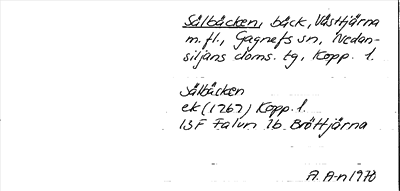 Sålbäcken, bäck, Västtjärna
m. fl., Gagnefs sn, Nedan-
siljans doms. tg, Kopp. l.
Sålbäcken
ek (1767) Kopp. l.
13F Falun 2b. Bröttjärna
A. A-n 1970